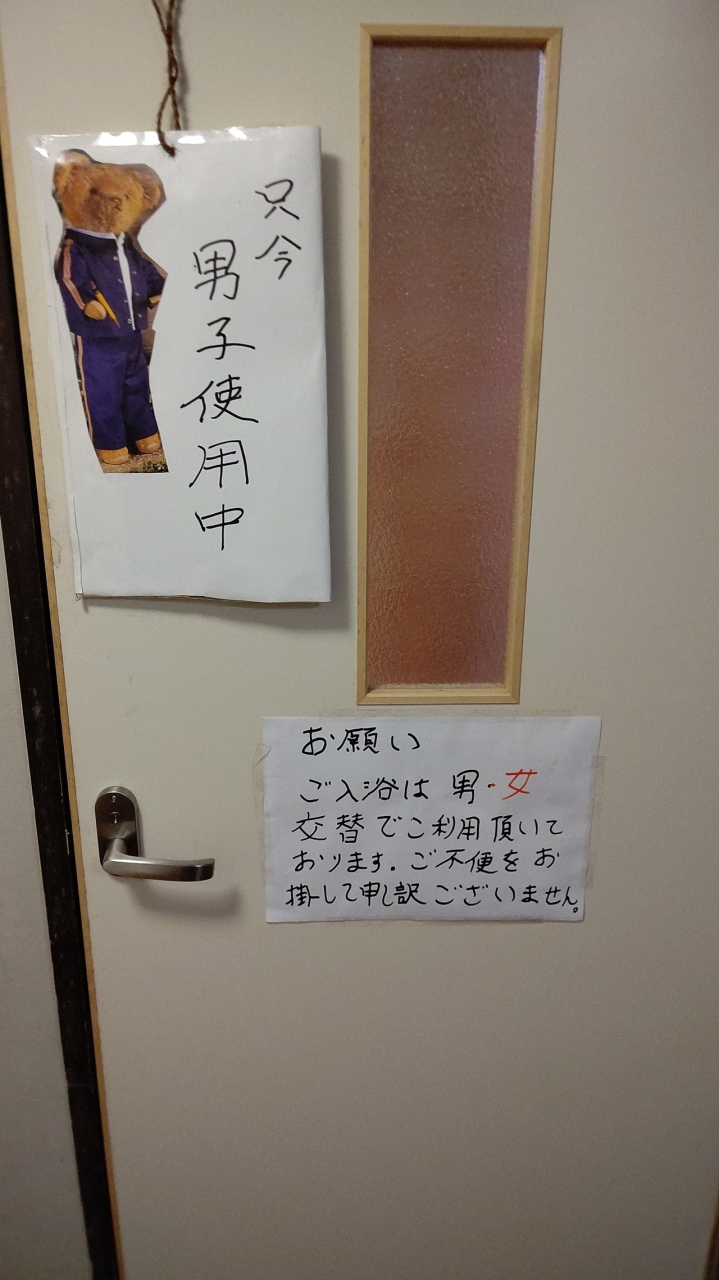 只今
男子使用中
お願い
ご入浴は男・女
交替でご利用頂いて
おります。ご不便をお
掛して申し訳ございません。